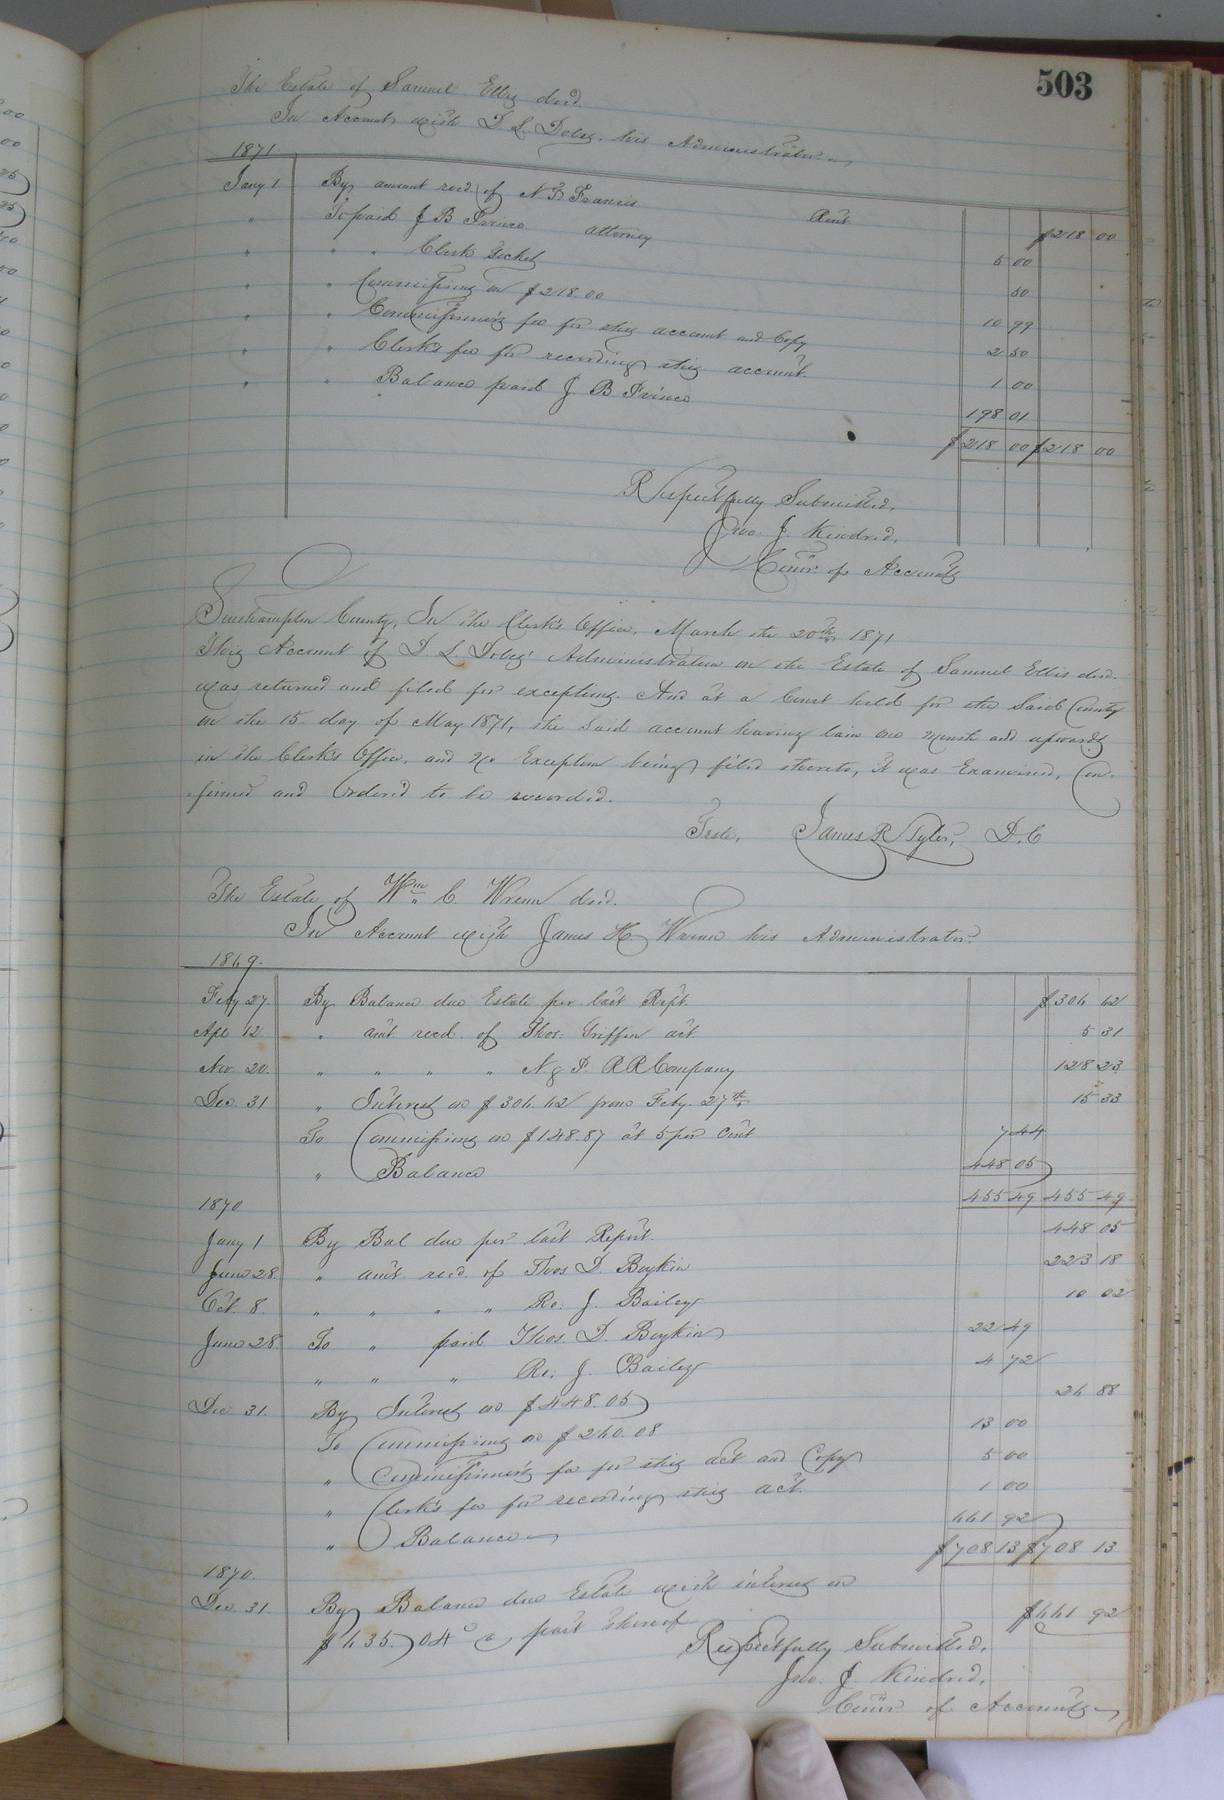 503
The Estate of Samuel Ellis decd.
In Account with T. L. Doles his Administrator
1871
Jany 1 By amount recd. of N. T. Francis $218 00
" To paid J B Prince attorney 5 00
" " " Clerk ticket 50
" " Commissions on $218.00 10 99
" " Commissioner's fee for this account and Copy 2 50
" " Clerk's fee for recording this account 1 00
" " Balance paid J. B. Prince 198 01
$218 00 $218 00
Respectfully Submitted,
Jno. J. Kindred,
Comr. of Accounts
Southampton County, In the Clerk's Office, March the 20th 1871
This Account of T. L. Doles' Administration on the Estate of Samuel Ellis decd.
was returned and filed for exceptions. And at a Court held for the Said County
on the 15 day of May 1871, the said account having lain one month and upwards
in the Clerk's Office, and No Exception being filed thereto, it was Examined, Con-
firmed and Ordered to be recorded.
Teste, James R Tyler, D. C
The Estate of Wm. C. Wrenn decd.
In Account with James H. Wrenn his Administrator
1869.
Feby 27. By Balance due Estate per last Rept. $306 62
Apl 12 " amt. recd. of Thos. Griffin act. 5 31
Nov. 20. " " " " N & P. R R Company 128 23
Dec. 31 " Interest on $306.62 from Feby. 27th 15 33
To Commissions on $148.87 at 5 per Cent 7 44
" Balance 448 05
455 49 455 49
1870
Jany 1 By Bal due per last Report. 448 05
June 28. " amt. recd. of Thos D. Boykin 223 18
Oct. 8. " " " " Ro: J. Bailey 10 02
June 28. To " paid Thos. D. Boykin 22 49
" " " Ro: J. Bailey 4 72
Dec. 31. By Interest on $448.05 26 88
To Commissions on $260.08 13 00
" Commissioner's fee for this act and Copy 5 00
" Clerk's fee for recording this act. 1 00
" Balance 661 92
$708 13 $708 13
1870.
Dec. 31 By Balance due Estate with interest on
$635.04 a part thereof $661 92
Respectfully Submitted,
Jno. J. Kindred,
Comr. of Accounts